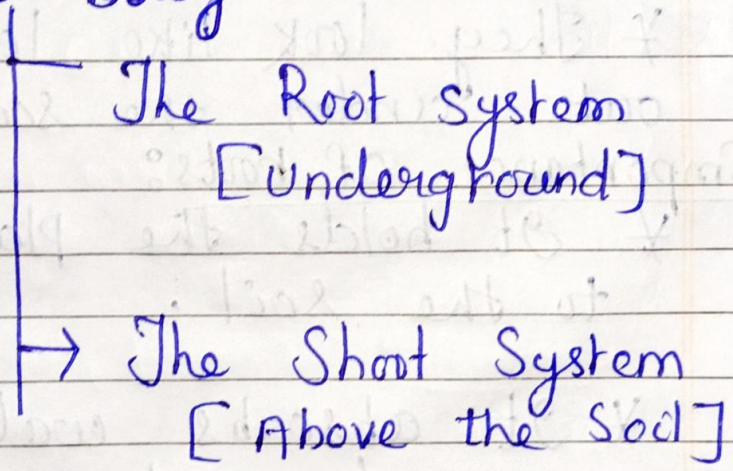 The Root System
[Underground]
The Shoot System
[Above the Soil]